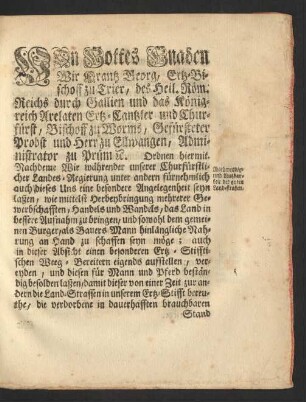 Von Gottes Gnaden
Wir Frantz Georg, Ertz-Bi-
schoff zu Trier, des Heil. Röm.
Reichs durch Gallien und das König-
reich Arelaten Ertz-Cantzler und Chur-
fürst, Bischoff zu Worms, Gefürsteter
Probst und Herr zu Elwangen, Admi-
nistrator zu Prüm ꝛc. Ordnen hiermit.
Nachdeme Wir während unserer Churfürstli-
cher Landes-Regierung unter andern fürnehmlich
auch dieses Uns eine besondere Angelegenheit seyn
lasten, wie mittelst Herbeybringung mehrerer Ge-
werbschafften, Handels und Wandels, das Land in
bessere Aufnahm zu bringen, und sowohl dem gemei-
nen Burger, als Bauers Mann hinlängliche Nah-
rung an Hand zu schaffen seyn möge: auch
in dieser Absicht einen besonderen Ertz-Stifftl-
schen Weeg-Bereitern eigends aufstellen, ver-
eyden, und diesen für Mann und Pferd bestän-
dig besolden lassen, damit dieser von einer Zeit zur an-
dern die Land-Strassen in unserem Ertz-Stifft bereu-
the, die verdorbene in dauerhafften brauchbaren
Stand
Nothwendig-
und Nutzbar-
keit der guten
Land-strassen.